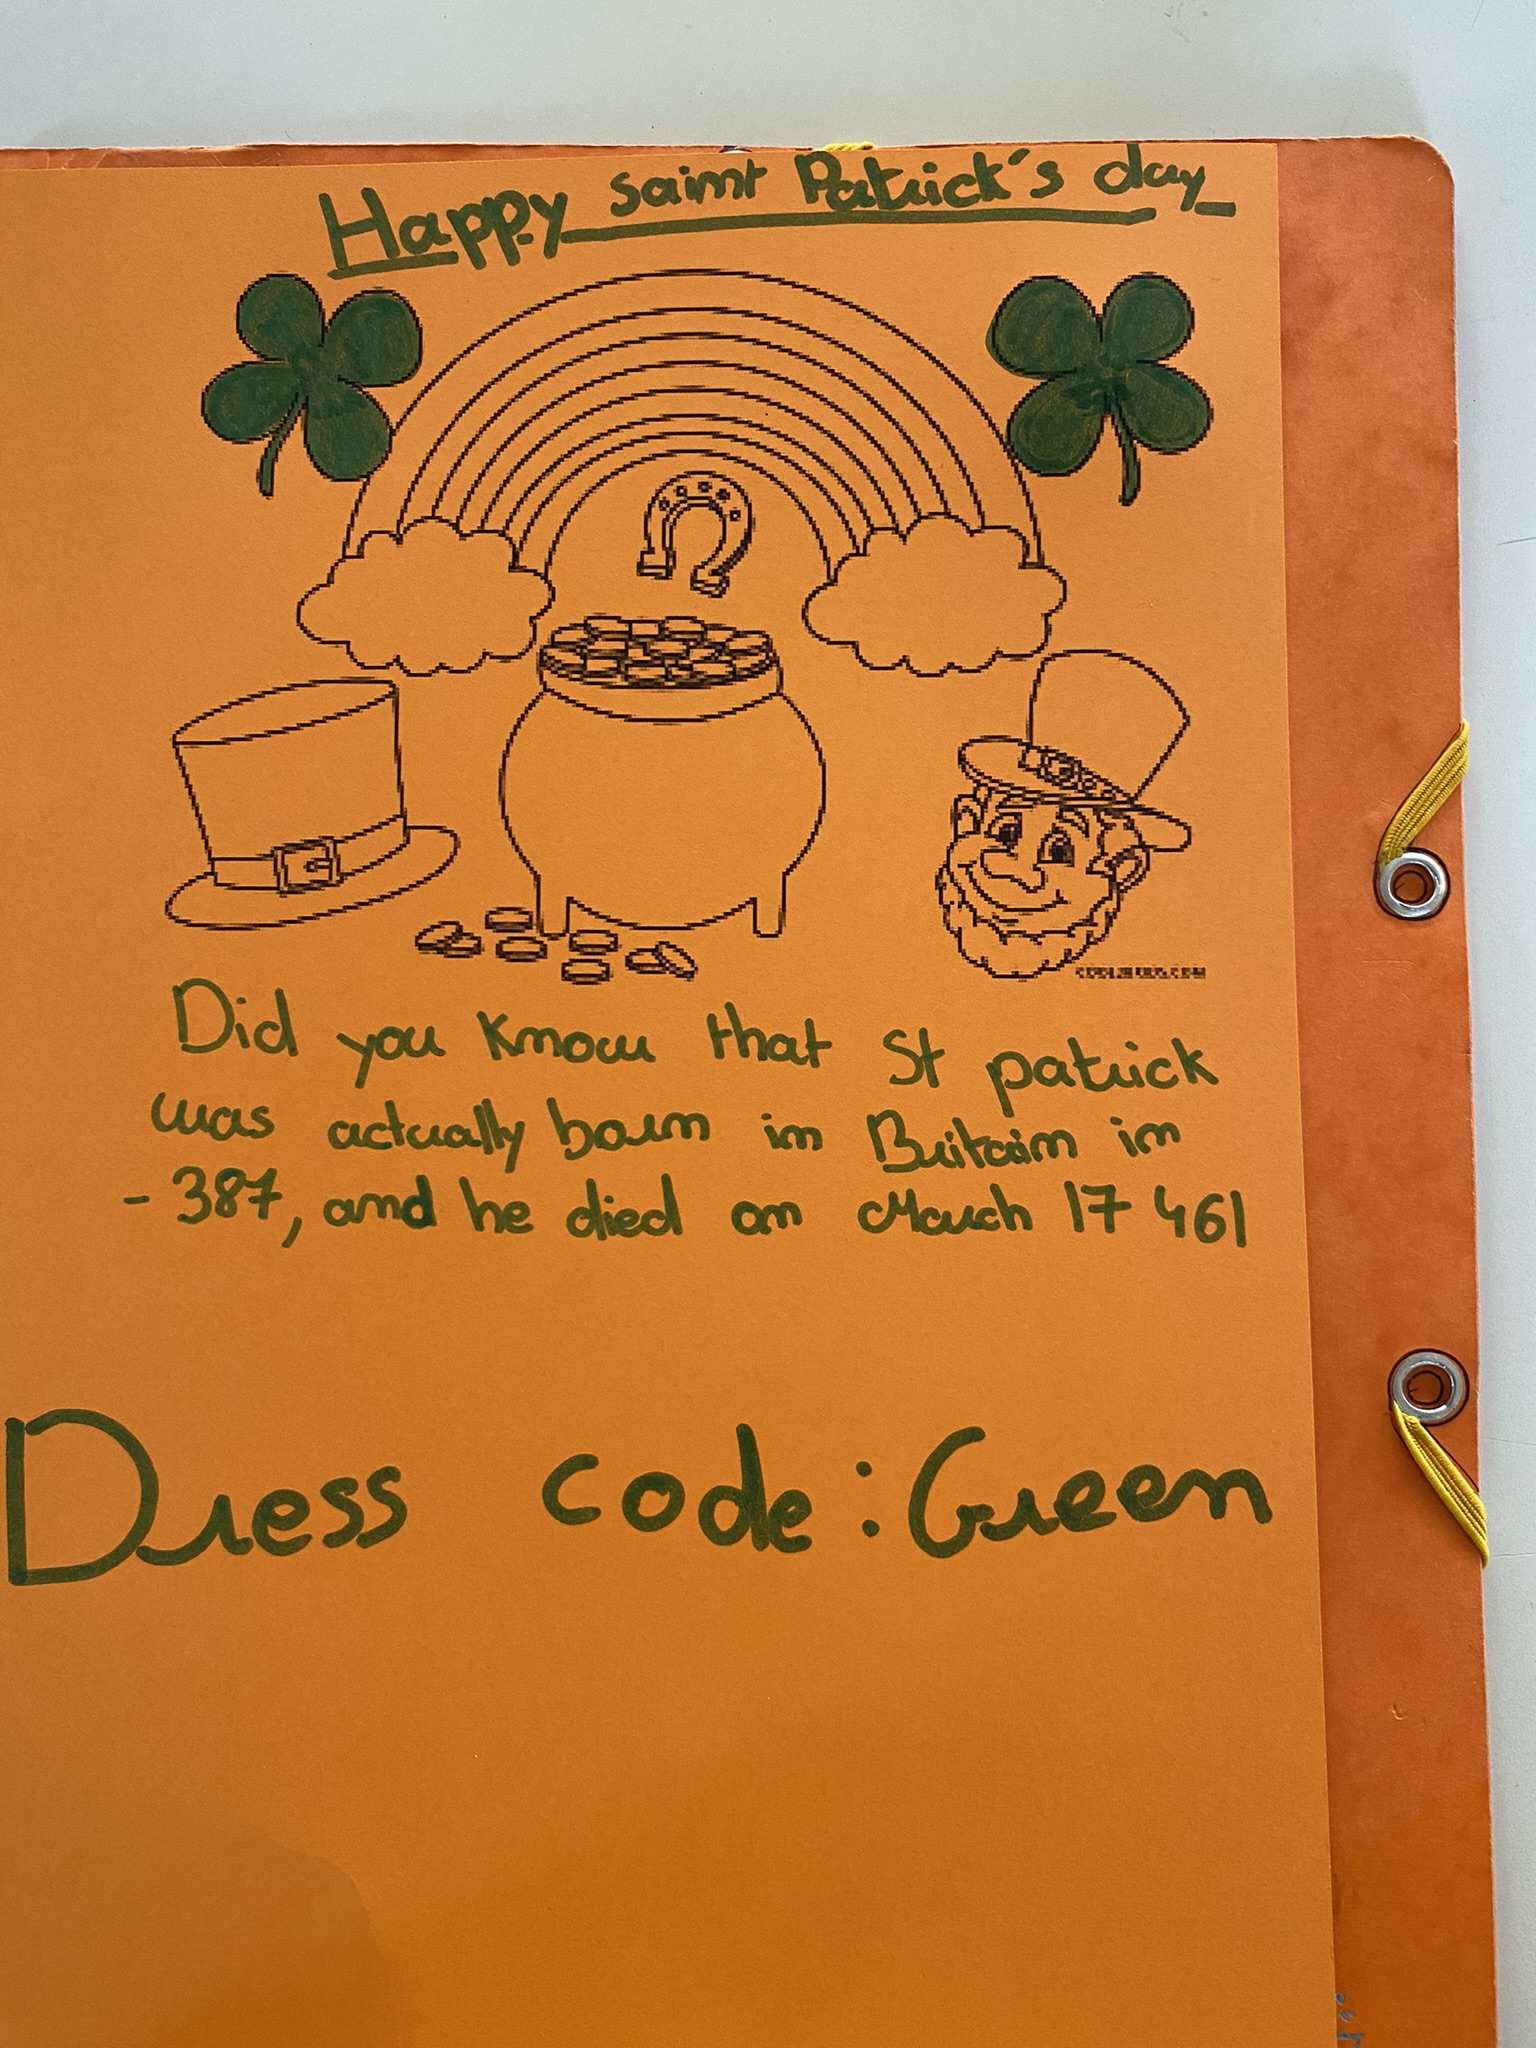 Happy saint Patrick's day
Did you know that St patrick
was actually born in Britain in
-387, and he died on March 17 461
Dress code: Green